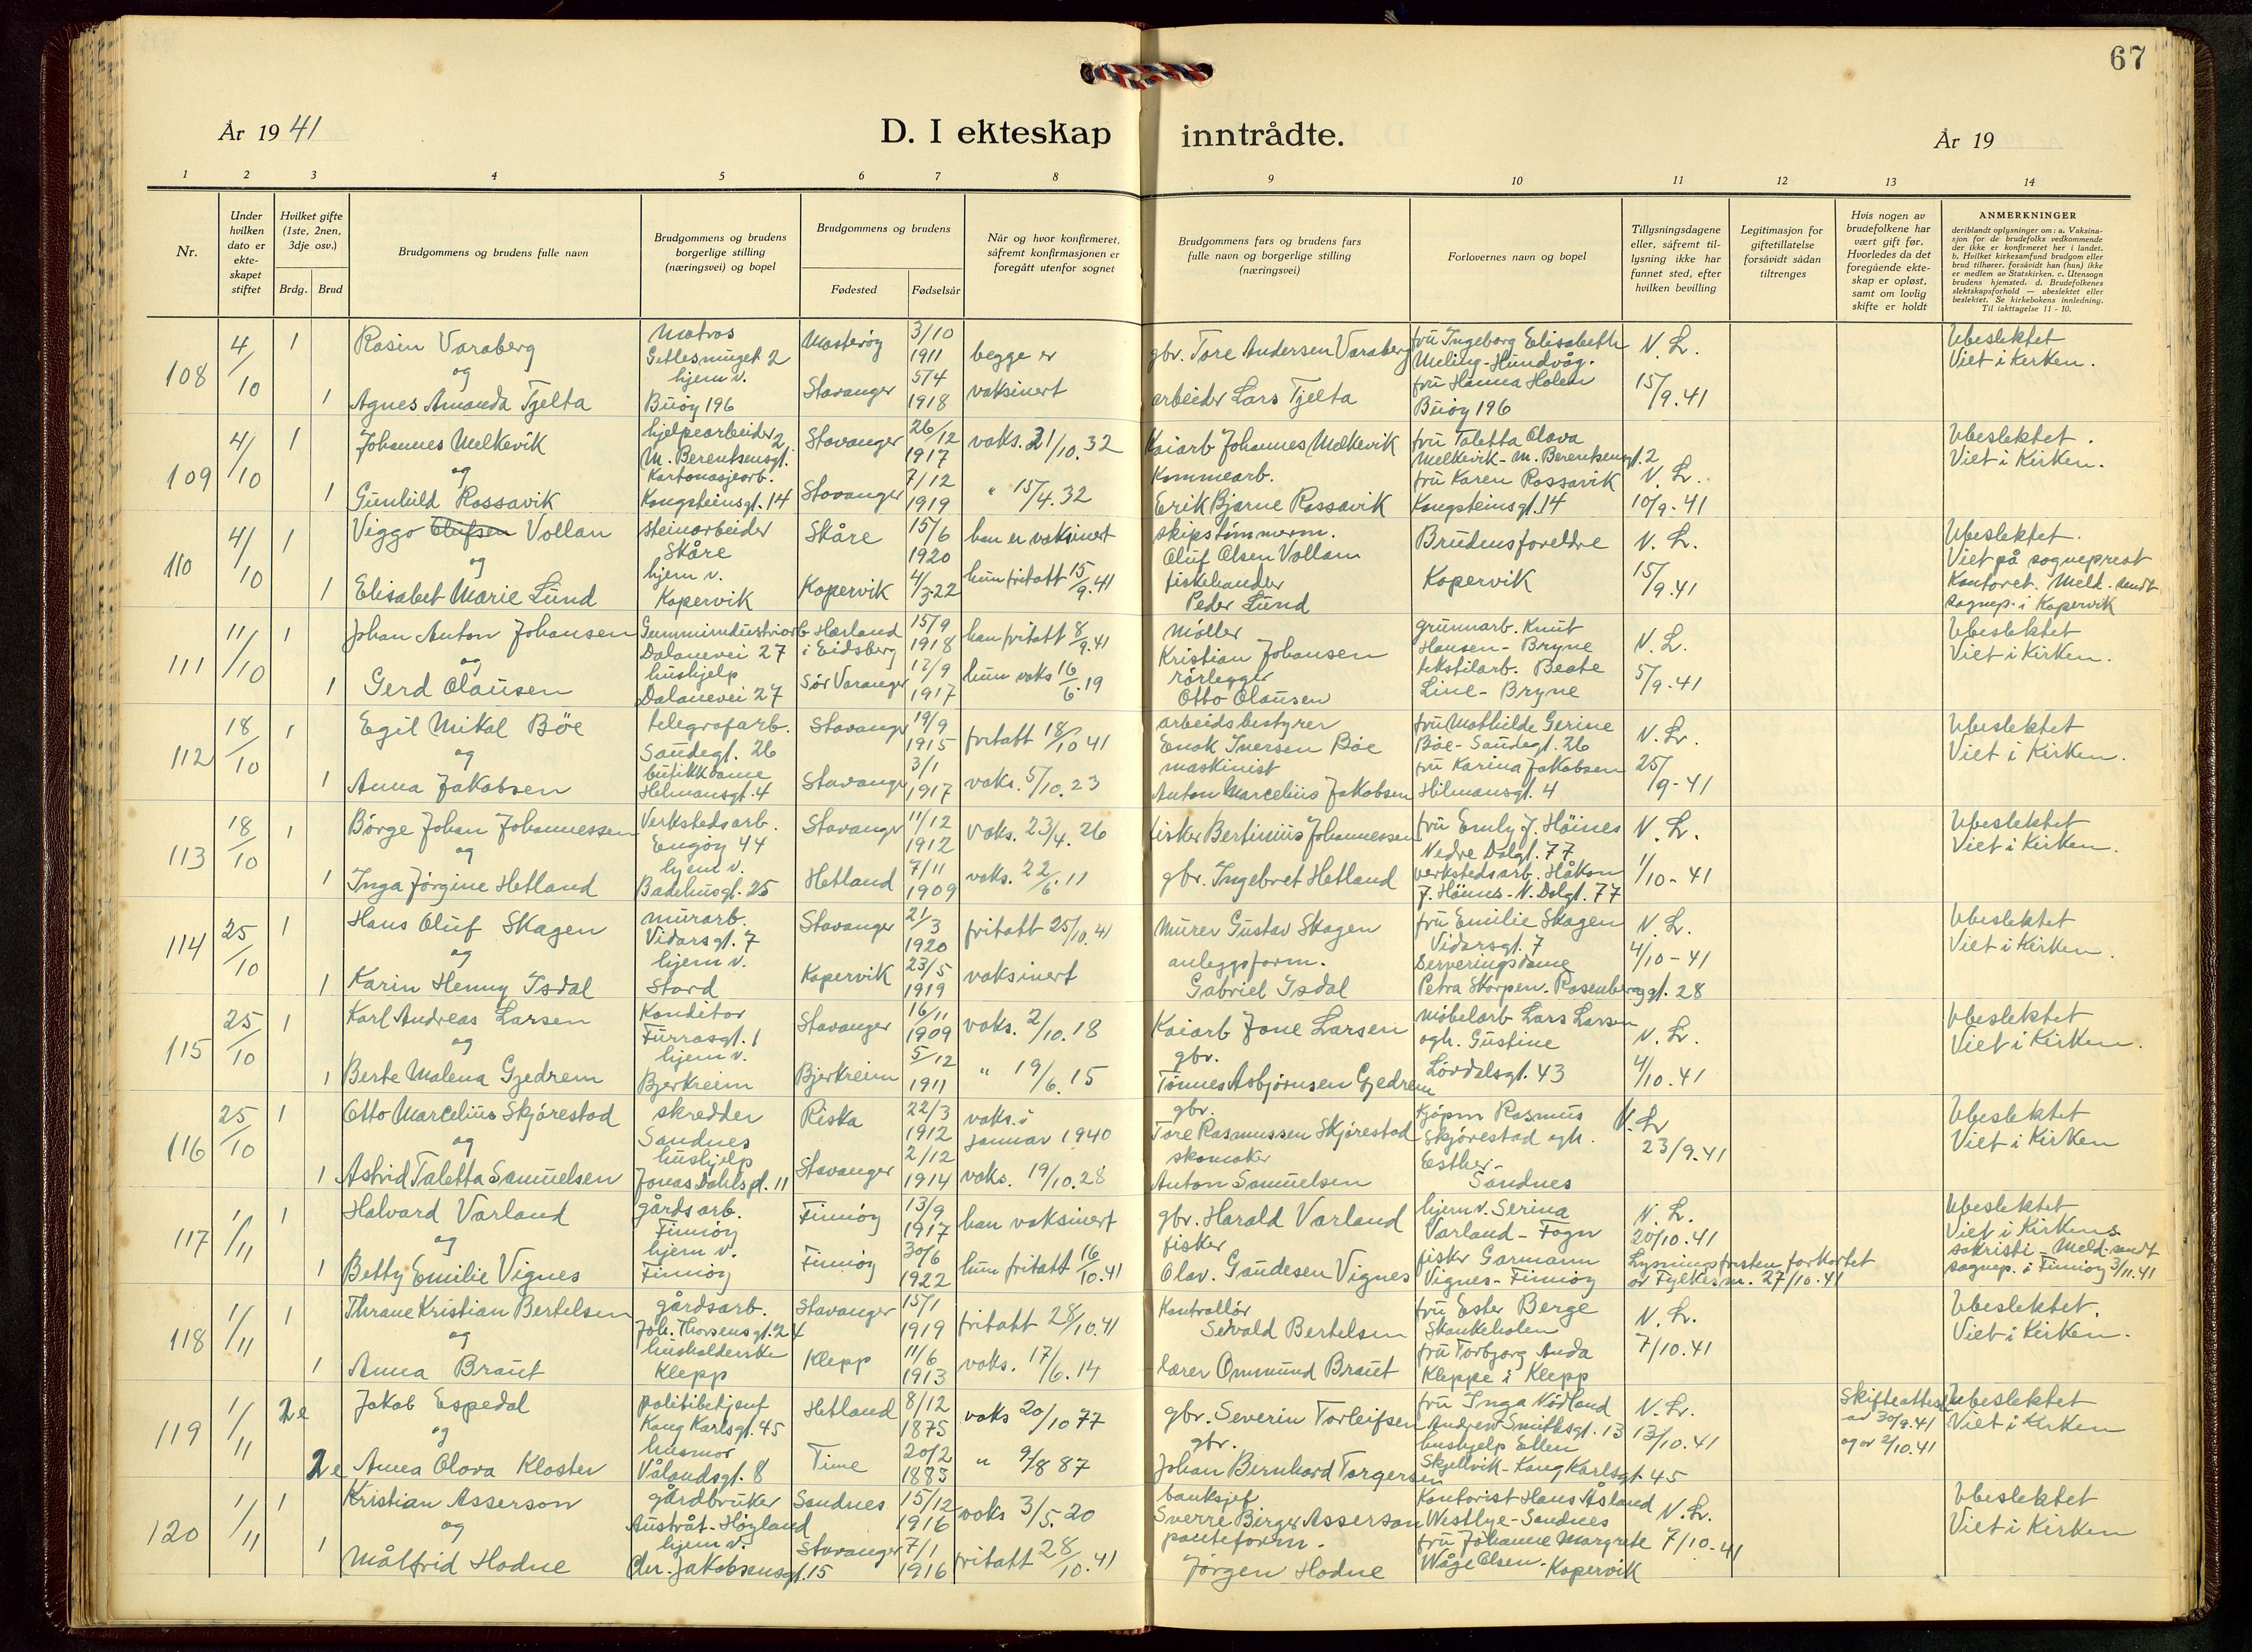 67
År 1941
D. I ekteskap inntrådte.
År 19
1 2 3 4 5 6 7 8 9 10 11 12 13 14
Nr.
Under hvilken dato er ekte-skapet stiftet
Hvilket gifte (1ste, 2nen, 3dje osv.)
Brdg. Brud
Brudgommens og brudens fulle navn
Brudgommens og brudens borgerlige stilling (næringsvei) og bopel
Brudgommens og brudens
Fødested Fødselsår
Når og hvor konfirmeret, såfremt konfirmasjonen er foregått utenfor sognet
Brudgommens fars og brudens fars fulle navn og borgerlige stilling (næringsvei)
Forlovernes navn og bopel
Tillysningsdagene eller, såfremt til-lysning ikke har funnet sted, efter hvilken bevilling
Legitimasjon for giftetillatelse forsåvidt sådan tiltrenges
Hvis nogen av brudefolkene har vært gift før. Hvorledes da det foregående ekte-skap er opløst, samt om lovlig skifte er holdt
ANMERKNINGER
deriblandt oplysninger om: a. Vaksina-sjon for de brudefolks vedkommende der ikke er konfirmeret her i landet. b. Hvilket kirkesamfund brudgom eller brud tilhører, forsåvidt han (hun) ikke er medlem av Statskirken. c. Utensogn brudens hjemsted. d. Brudefolkenes slektskapsforhold — ubeslektet eller beslektet. Se kirkebokens innledning. Til iakttagelse 11 - 10.
108 4/10 1 Rasin Varaberg Matros Gitlesmuget 2 Mosterøy 3/10 1911 begge er gbr. Tore Andersen Varaberg fru Ingeborg Elisabeth Meling - Hundvåg. N. L. Ubeslektet Viet i Kirken.
og
1 Agnes Amanda Tjelta hjem v. Buøy 196 Stavanger 5/4 1918 vaksinert arbeider Lars Tjelta fru Hanna Holen Buøy 196 15/9.41
109 4/10 1 Johannes Melkevik hjelpearbeider M. Berentsensgt. 2 Stavanger 26/12 1917 vaks. 21/10.32 Kaiarb Johannes Melkevik fru Taletta Olava Melkevik - M. Berentsensgt. 2 N. L. Ubeslektet. Viet i Kirken.
og
1 Gunhild Rossavik Kartonasjearb. Kongsteinsgt. 14 Stavanger 7/12 1919 " 15/4.32 Kommearb. Erik Bjarne Rossavik fru Karen Rossavik Kongsteinsgt. 14 10/9-41
110 4/10 1 Viggo Olufsen Vollan steinarbeider Skåre Skåre 15/6 1920 han er vaksinert skipstømmerm. Oluf Olsen Vollan Brudens foreldre N. L. Ubeslektet. Viet på sogneprest
og
1 Elisabet Marie Lund hjem v. Kopervik Kopervik 4/3.22 hun fritatt 15/9.41 fiskehandler Peder Lund Kopervik 15/9.41 Kontoret. Meld. sendt sognep. i Kopervik
111 11/10 1 Johan Anton Johansen Gummindustriarb Dalanevei 27 Hærland i Eidsberg 15/9 1918 han fritatt 8/9.41 Møller Kristian Johansen grunnarb. Knut Hansen - Bryne N. L. Ubeslektet Viet i Kirken.
og
1 Gerd Olausen hushjelp Dalanevei 27 Sør Varanger 12/9 1917 hun vaks 16/6.19 rørlegger Otto Olausen tekstilarb. Beate Line - Bryne 5/9.41
112 18/10 1 Egil Mikal Böe telegrafarb. Saudegt. 26 Stavanger 19/9 1915 fritatt 18/10 41 arbeidsbestyrer Enok Iversen Böe fru Mathilde Gerine Böe - Saudegt. 26 N. L. Ubeslektet Viet i Kirken.
og
1 Anna Jakobsen butikkdame Hilmansgt. 4 Stavanger 3/1 1917 vaks. 5/10.23 maskinist Anton Marcelius Jakobsen fru Karina Jakobsen Hilmansgt. 4 25/9-41
113 18/10 1 Börge Johan Johannessen Verkstedsarb. Engøy 44 Stavanger 11/12 1912 Vaks. 23/4.26 fisker Bertinius Johannessen fru Emly J. Höines Nedre Dalgt. 77 N. L. Ubeslektet Viet i Kirken.
og
1 Inga Jörgine Hetland hjem v. Badehusgt. 25 Hetland 7/11 1909 vaks. 22/6.11 gbr. Ingebret Hetland verkstedsarb. Håkon J. Höines - N. Dalgt. 77 1/10-41
114 25/10 1 Hans Oluf Skagen murarb. Vidarsgt. 7 Stavanger 21/3 1920 fritatt 25/10.41 Murer Gustav Skagen fru Emilie Skagen Vidarsgt. 7 N. L. Ubeslektet Viet i Kirken.
og
1 Karin Henny Isdal hjem v. Stord Kopervik 23/5 1919 vaksinert anleggsform. Gabriel Isdal Serveringsdame Petra Skorpen. Rosenberggt. 28 4/10-41
115 25/10 1 Karl Andreas Larsen Konditor Furrasgt. 1 Stavanger 16/11 1909 vaks. 2/10.18 Kaiarb Jone Larsen Möbelarb Lars Larsen ogh. Gustine N. L. Ubeslektet Viet i Kirken.
og
1 Berte Malena Gjedrem hjem v. Bjerkreim Bjerkreim 5/12 1911 " 19/6.15 gbr. Tönnes Asbjørnsen Gjedrem Lørdalsgt. 43 4/10.41
116 25/10 1 Otto Marcelius Skjörestad skredder Sandnes Riska 22/3 1912 vaks. i januar 1940 gbr. Tore Rasmussen Skjörestad Kjöpm Rasmus Skjörestad ogh. N. L Ubeslektet Viet i Kirken
og
1 Astrid Taletta Samuelsen hushjelp Jonas Dahlsgt. 11 Stavanger 2/12 1914 vaks. 19/10.28 skomaker Anton Samuelsen Esther - Sandnes 23/9.41
117 1/11 1 Halvard Varland gårdsarb. Finnöy Finnöy 13/9 1917 han vaksinert gbr. Harald Varland hjem v. Serina Varland - Fogn N. L. 20/10.41 Ubeslektet Viet i Kirkens
og
1 Betty Emilie Vignes hjem v. Finnöy Finnöy 30/6 1922 hun fritatt 16/10.41 fisker Olav. Gaudesen Vignes fisker Garmann Vignes - Finnöy Lysningsfristen forkortet av Fylkesm. 27/10.41 sakristi - Meld. sendt sognep. i Finnöy 3/11.41
118 1/11 1 Thrane Kristian Bertelsen gårdsarb. Joh. Thorsensgt. 24 Stavanger 15/1 1919 fritatt 28/10.41 Kontrollör Sevald Bertelsen fru Ester Berge Skankeholen N. L. Ubeslektet. Viet i Kirken.
og
1 Anna Braut husholderske Klepp Klepp 11/6 1913 vaks. 17/6.14 lærer Ommund Braut fru Torbjørg Anda Kleppe i Klepp 7/10.41
119 1/11 2e Jakob Espedal politibetjent Kong Karlsgt. 45 Hetland 8/12 1875 vaks 20/10 77 gbr. Severin Torleifsen fru Inga Nödland Andrew Smithsgt. 13 N. L. 13/10.41 Skifteattest av 30/9.41 og av 2/10.41 Ubeslektet Viet i Kirken
og
2e Anna Olava Kloster husmor Vålandsgt. 8 Time 20/2 1883 " 9/8 87 gbr. Johan Bernhard Torgersen hushjelp Ellen Skjellvik - Kong Karlsgt. 45
120 1/11 1 Kristian Asserson gårdbruker Austråt - Höyland Sandnes 15/12 1916 vaks 3/5.20 banksjef Sverre Birger Asserson Kontorist Hans Åsland Westlye - Sandnes N. L. Ubeslektet Viet i Kirken
og
1 Målfrid Hodne hjem v. Chr. Jakobsensgt. 15 Stavanger 7/1 1916 fritatt 28/10.41 panteform. Jörgen Hodne fru Johanne Margrete Våge Olsen - Kopervik 7/10-41